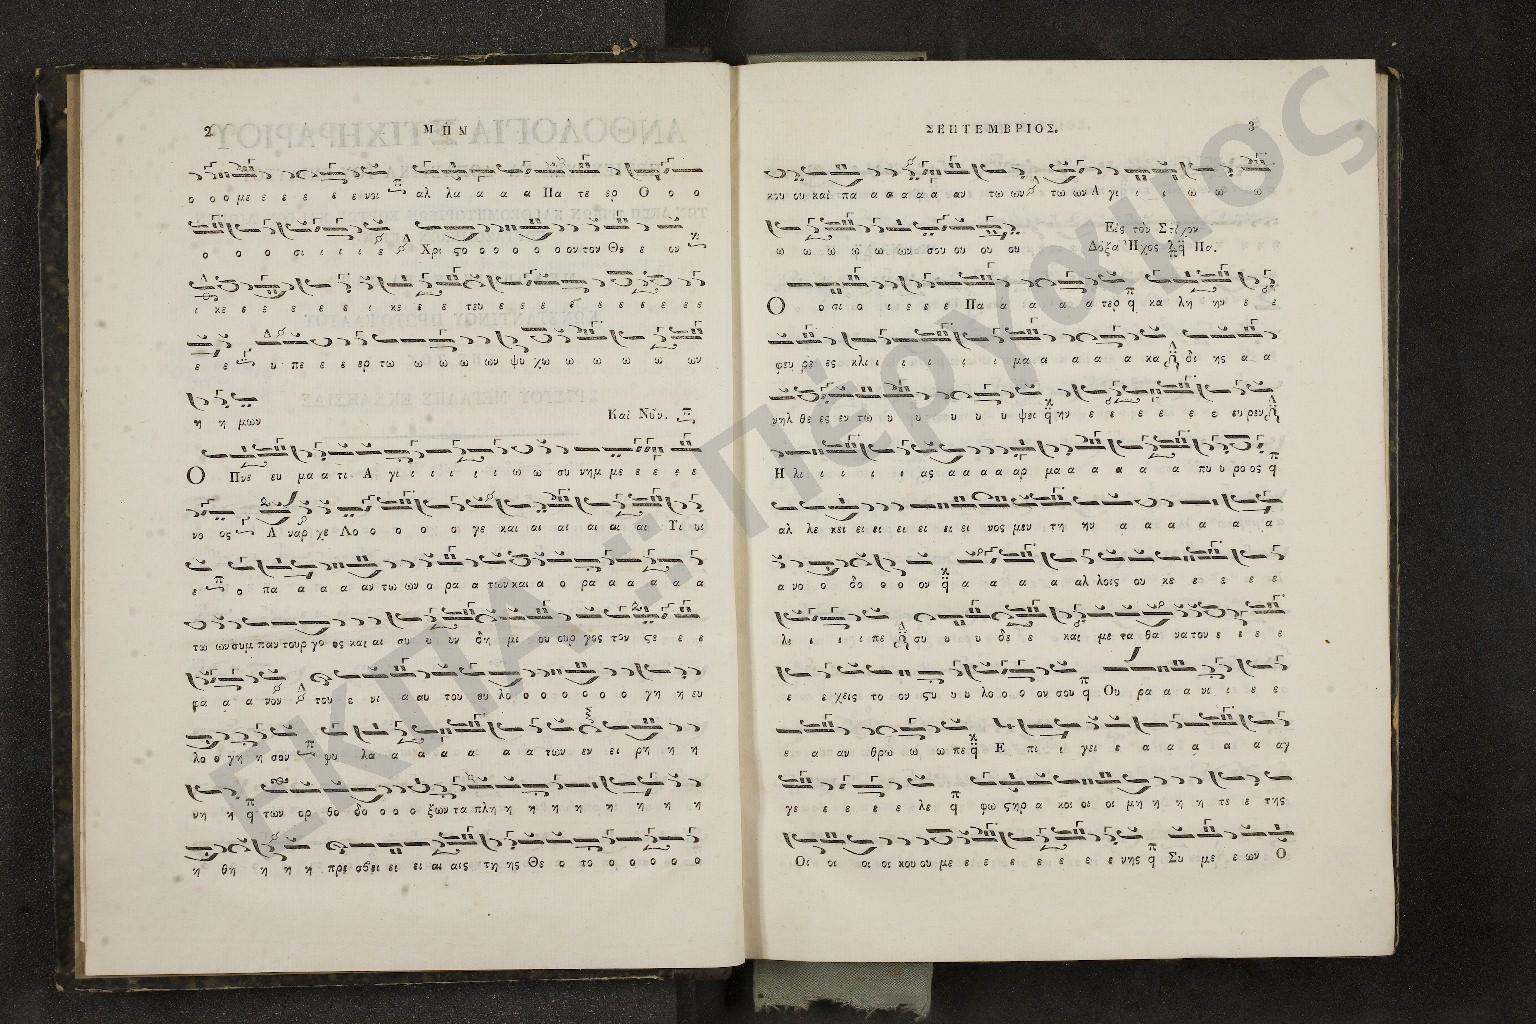 2
ΜΗΝ
ο ο ο με ε ε ε ε ε ε νοι αλ λα α α α Πα τε ερ Ο ο ο
ο ο ο σι ι ι ι ε Χρι ςο ο ο ο ο ο ο ον τον Θε ε ον
ι κε ε ε ε ε ε ι κε ε ε ε τευ ε ε ε ε ε ε ε ε ε ε
ε ε υ πε ε ε ερ τω ω ω ω ω ων ψυ χω ω ω ω ω ω ων
η η μων
Καὶ Νῦν.
Ο Πνε ευ μα α τι Α γι ι ι ι ι ι ω ω συ νημ με ε ε ε ε
νο ος Α ναρ χε Λο ο ο ο ο γε και αι αι αι αι αι αι Υι οι
ε ο πα α α α αν τω ων ο ρα α των και α ο ρα α α α α α
τω ων συμ παν τουρ γο ος και αι συ υ υν δη μι ου ουρ γος τον ςε ε ε
φα α α νον του ε νι α αυ του ευ λο ο ο ο ο ο ο ο γη η ευ
λο ο γη η σον φυ λα α α α α α α των εν ει ρη η η
νη η των ορ θο δο ο ο ο ξων τα πλη η η η η η η η η
η θη η η η πρε σβει ει ει αι αις τη ης Θε ο το ο ο ο ο ο
ΣΕΠΤΕΜΒΡΙΟΣ.
3
κου ου και πα α α α α α αν τω ων τω ων Α γι ι ι ω ω ω
ω ω ω ω ω ων σου ου ου ου
Εἰς τὸν Στίχον
Δόξα Ἦχος Πα.
Ο ο σι ο ι ε ε ε Πα α α α α α τερ κα λη ην ε ε
φευ ρε ες κλι ι ι ι ι ι ι μα α α α α α κα δι ης α α
νηλ θε ες εν τω υ υ υ υ υ υ ψει ην ε ε ε ε ε ε ε ευ ρεν
Η λι ι ι ι ι ας α α α α αρ μα α α α α α πυ υ ρο ος
αλ λε κει ει ει ει ει ει ει νος μεν τη ην α α α α α α
α νο ο δο ο ο ον α α α α αλ λοις ου κε ε ε ε ε
λι ι ι ι πε συ υ υ υ δε ε και με τα θα να τον ε ε ε ε
ε ε χεις το ον ςυ υ υ λο ο ο ον σου Ου ρα α α νι ι ε ε
ε α αν θρω ω ω πε Ε πι ι γει ε α α α α α αγ
γε ε ε ε ε λε φω ςηρ α κοι οι οι μη η η η τε ε της
Οι οι οι οι κου ου με ε ε ε ε ε ε ε ε νης Συ με ε ων Ο